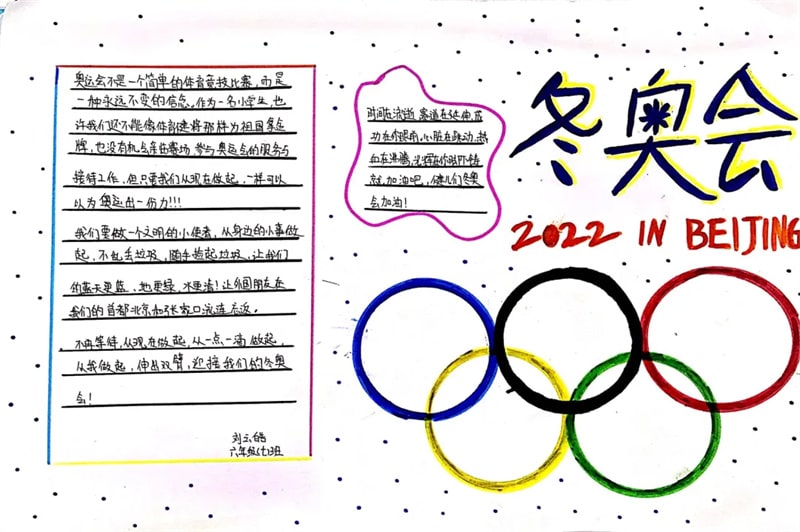 奥运会不是一个简单的体育竞技比赛,而是
一种永远不变的信念。作为一名小学生,也
许我们还不能像体育健将那样为祖国夺金
牌,也没有机会亲在赛场 参与奥运会的服务与
接待工作,但只要我们从现在做起,一样可以
以为奥运出一份力!!!
我们要做一个文明的小使者,从身边的小事做
起,不乱丢垃圾,随手捡起垃圾,让我们
的蓝天更蓝、地更绿、水更清!让外国朋友在
我们的首都北京和张家口流连忘返。
不再等待,从现在做起,从一点一滴做起,
从我做起,伸出双臂,迎接我们的冬奥
会!
刘云皓
六年级(七)班
时间在流逝 赛道在延伸,成
功在你眼前,心脏在跃动,热
血在沸腾,光辉在你脚下铸
就。加油吧,健儿们!冬奥
会加油!
冬奥会
2022 IN BEIJING